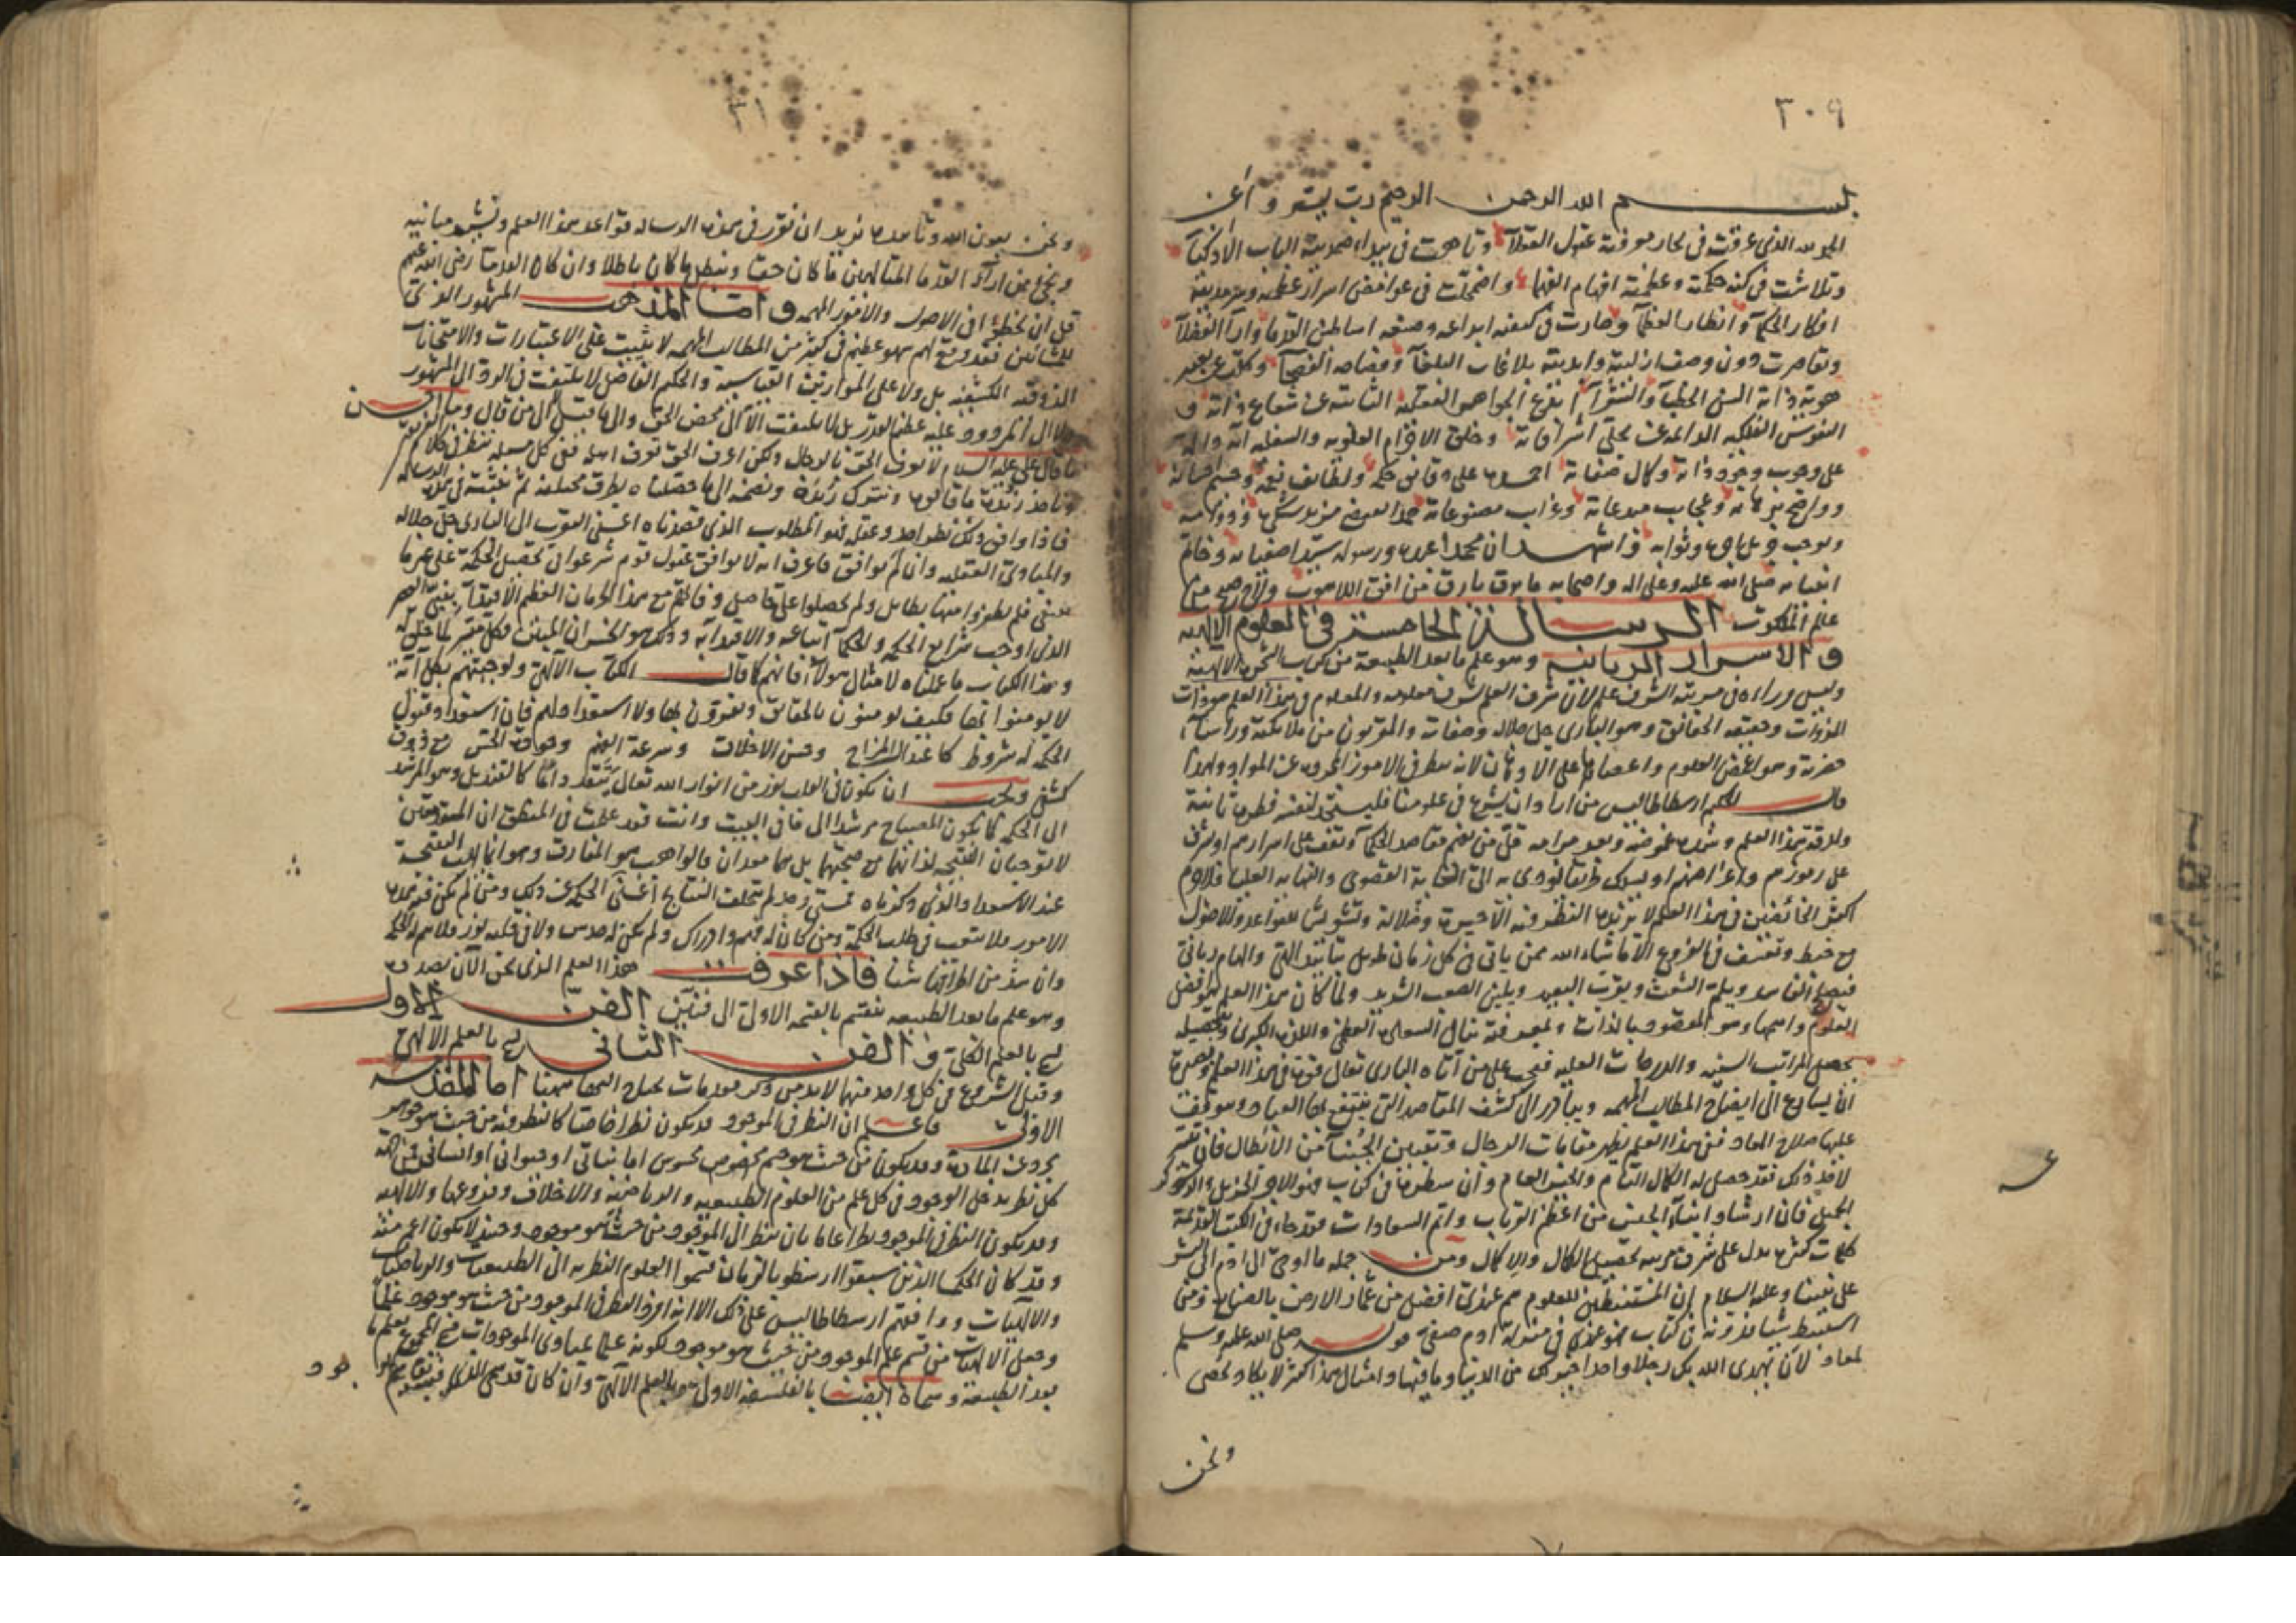 ٣٠٩
بسم الله الرحمن الرحيم رب يسر واعن
الحمد لله الذى غرقت فى بحار معرفته عقول العقلآء وتاهت فى بيداء صمديته الباب الاذكيآء
وتلاشت فى كنه حكمته وعظمته افهام الفهمآء واضمحلت فى غوامض اسرار عظمته وسرمديته
افكار الحكمآء وانظار العظمآء وحارت فى كيفية ابداعه وصنعه اساطين القدمآء وارآء الفضلآء
وتقاصرت دون وصف ازليته وابديته بلاغات البلغآء وفصاحة الفصحآء وكلت عن
هوية ذاته السن الخطبآء والشعرآء الجواهر العقلية الثابتة عن شعاع ذاته و
النفوس الفلكيه الدائمة عن تجلى اشراقاته وخلق الاجرام العلويه والسفليه
على وجوب وجود ذاته وكمال صفاته احمده على دقائق حكمه ولطائف نعمه وجسيم احسانه
وواضح برهانه وعجايب مبدعاته وغرايب مصنوعاته حمدا
ويوجب جزيل اجره وثوابه واشهد ان محمدا عبده ورسوله سيد اصفيائه وخاتم
انبيائه صلى الله عليه وعلى اله واصحابه ما برق بارق من افق اللاهوت ولاح صبح من
عالم الملكوت الرسالة الخامسة فى العلوم الالهيه
والاسرار الربانيه وهو علم ما بعد الطبيعة من كتاب الشجرة الالهية
وليس وراءه فى مرتبة الشرف علم لان شرف العلم بشرف معلومه والمعلوم فى هذا العلم هو ذات
الذوات وحقيقة الحقائق وهو البارى جل جلاله وصفاته والمقربون من ملائكته
حضرته وهو اغمض العلوم واعصاها على الاذهان لانه نظر فى الامور المجردة عن المواد ولهذا
قال الحكيم ارسطاطاليس من اراد ان يشرع فى علومنا فليستحدث لنفسه فطرة ثانية
ولدقة هذا العلم وشدة غموضه وبعد مرامه قل من يفهم مقاصد الحكمآء ويقف على اسرارهم او يشرف
على رموزهم واغراضهم او يسلك طريقا يؤدى به الى الغاية القصوى والنهاية العليا فلا جرم
اكثر الخائضين فى هذا العلم لا يزيدهم النظر فيه الا حيرة وضلالة وتشويشا للقواعد والاصول
مع خبط وتعسف فى الفروع الا ما شاء الله ممن ياتى فى كل زمان طويل بتاييد الهى والهام ربانى
فيصلح الفاسد ويلم الشعث ويقرب البعيد ويلين الصعب الشديد ولما كان هذا العلم هو افضل
العلوم واسماها وهو المقصود بالذات وبمعرفته تنال السعادة العظمى واللذة الكبرى وبتحصيله
يحصل المراتب السنيه والدرجات العليه فيجب على من آتاه البارى تعالى قوة فى هذا العلم وبصيرة
ان يسارع الى ايضاح المطالب المهمه ويبادر الى كشف المقاصد التى ينتفع بها العباد وموقف
عليها صلاح المعاد ففى هذا العلم يظهر مقامات الرجال وتتعين الجبنآء من الابطال فان تيسر
لاحد ذلك فقد حصل له الكمال التام والخير العام وان سطره فى كتاب فهو الاجر الجزيل والذكر
الجميل فان ارشاد ابنآء الجنس من اعظم القربات واتم السعادات فقد جاء فى الكتب القديمة
كلمات كثيرة تدل على شرف مرتبة تحصيل الكمال والاكمال ومن جملة ما اوحى الى ادم ابى البشر
على نبينا وعليه السلام ان المستنبطين للعلوم هم عندى افضل من عمار الارض بالصنايع ومن
استنبط شيئا فدونه فى كتاب فهو عندى فى منزلة ادم صفيى قوله صلى الله عليه وسلم
لمعاذ لان يهدى الله بك رجلا واحدا خير لك من الدنيا وما فيها وامثال هذا اكثر لا يكاد يحصى
ونحن
ونحن بعون الله وتاييده نريد ان نقرر فى هذه الرسالة قواعد هذا العلم ونشيد مبانيه
ونحق من ارآء القدما المتالهين ما كان حقا ونبطل ما كان باطلا وان كان القدمآء رضى الله عنهم
قل ان يخطؤا فى الاصول والامور المهمه واما المذهب المشهور الذى
للمشائين فقد وقع لهم سهو عظيم فى كثير من المطالب المهمه لا يثبت على الاعتبارات والامتحانات
الذوقية الكشفيه بل ولا على الموازين القياسيه والحكيم الفاضل لا يلتفت فى الورد الى المشهور
ولا الى المردود عليه عظيم القدر بل لا يلتفت الا الى محض الحق والى ما قيل لا الى من قال وما احسن
ما قال على عليه السلام لا يعرف الحق بالرجال ولكن اعرف الحق تعرف اهله ففى كل مسئلة ننظر فى كلام الفريقين
وناخذ زبدة ما قالوه ونترك زبده ونضمه الى ما حصلناه بطرق مختلفه ثم نثبته فى هذه الرسالة
فاذا وافق ذلك نظر احد وعقله فهو المطلوب الذى قصدناه اعنى القرب الى البارى جل جلاله
والمبادى العقليه وان لم يوافق فاعرف انه لا يوافق عقول قوم شرعوا فى تحصيل الحكمة على غير ما
ينبغى فلم يظفروا منها بطايل ولم يحصلوا على حاصل
الذى اوجب شرايع الحكيم والحكمآء اتباعه والاقتدآء به وذلك هو الخسران المبين وكل ميسر لما خلق له
وهذا الكتاب ما عملناه لامثال هولآء فانهم كما قال الكتاب الآلهى ولو جئتهم بكل آية
لا يومنوا بها فكيف يومنون بالحقائق ويقرون بها ولا استعداد لهم فان استعداد قبول
الحكمه له شروط كاعتدال المزاج وحسن الاخلاق وسرعة الفهم وجودة الحدس مع ذوق
كشفى ويجب ان يكون فى القلب نور من انوار الله تعالى يتقد دائما كالقنديل وهو المرشد
الى الحكمه كما يكون المصباح مرشدا الى ما فى البيت وانت فقد علمت فى المنطق ان المقدمتين
لا توجبان النتيجه لذاتهما مع صحتهما بل هما معدان فالواهب هو المفارق وهو انما يهب النتيجة
عند الاستعداد الذى ذكرناه فمتى لم تختلف النتايج اعنى الحكمة عن ذلك ومن لم يكن فيه هذه
الامور فلا يتعب فى طلب الحكمة ومن كان له فهم وادراك ولم يكن له حدس ولا فى قلبه نور فلا يتم له الحكمه
وان شذ من اطرافها شيئا فاذا عرفت هذا العلم الذى نحن الآن بصدده
وهو علم ما بعد الطبيعه ينقسم بالقسمة الاولى الى فنين الفن الاول
يسمى بالعلم الكلى والفن الثانى يسمى بالعلم الالهى
وقبل الشروع فى كل واحد منهما لا بد من ذكر مقدمات يحتاج اليها ههنا اما المقدمه
الاولى فاعلم ان النظر فى الموجود قد يكون نظرا خاصا كالنظر فيه من حيث هو جوهر
مجرد عن المادة وقد يكون من حيث هو جسم مخصوص محسوس اما نباتى او حيوانى او انسانى
كل نظر يدخل الوجود فى كل علم من العلوم الطبيعيه والرياضية والاخلاق وفروعها والالهيه
وقد يكون النظر فى الموجود نظرا عاما بان ينظر الى الموجود من حيث هو موجود وحينئذ لا يكون اعم منه
وقد كان الحكما الذين سبقوا ارسطو بالزمان قسموا العلوم النظريه الى الطبيعيات والرياضيات
والالهيات ووافقهم ارسطاطاليس على ذلك الا انه افرد النظر فى الموجود من حيث هو موجود علما
وجعل الالهيات من قسم علم الموجود من حيث هو موجود لكونه علما بمبادى الموجودات فسمى المجموع بعلم ما
بعد الطبيعة وسماه ايضا بالفلسفة الاولى وبالعلم الآلهى وان كان قد سمى